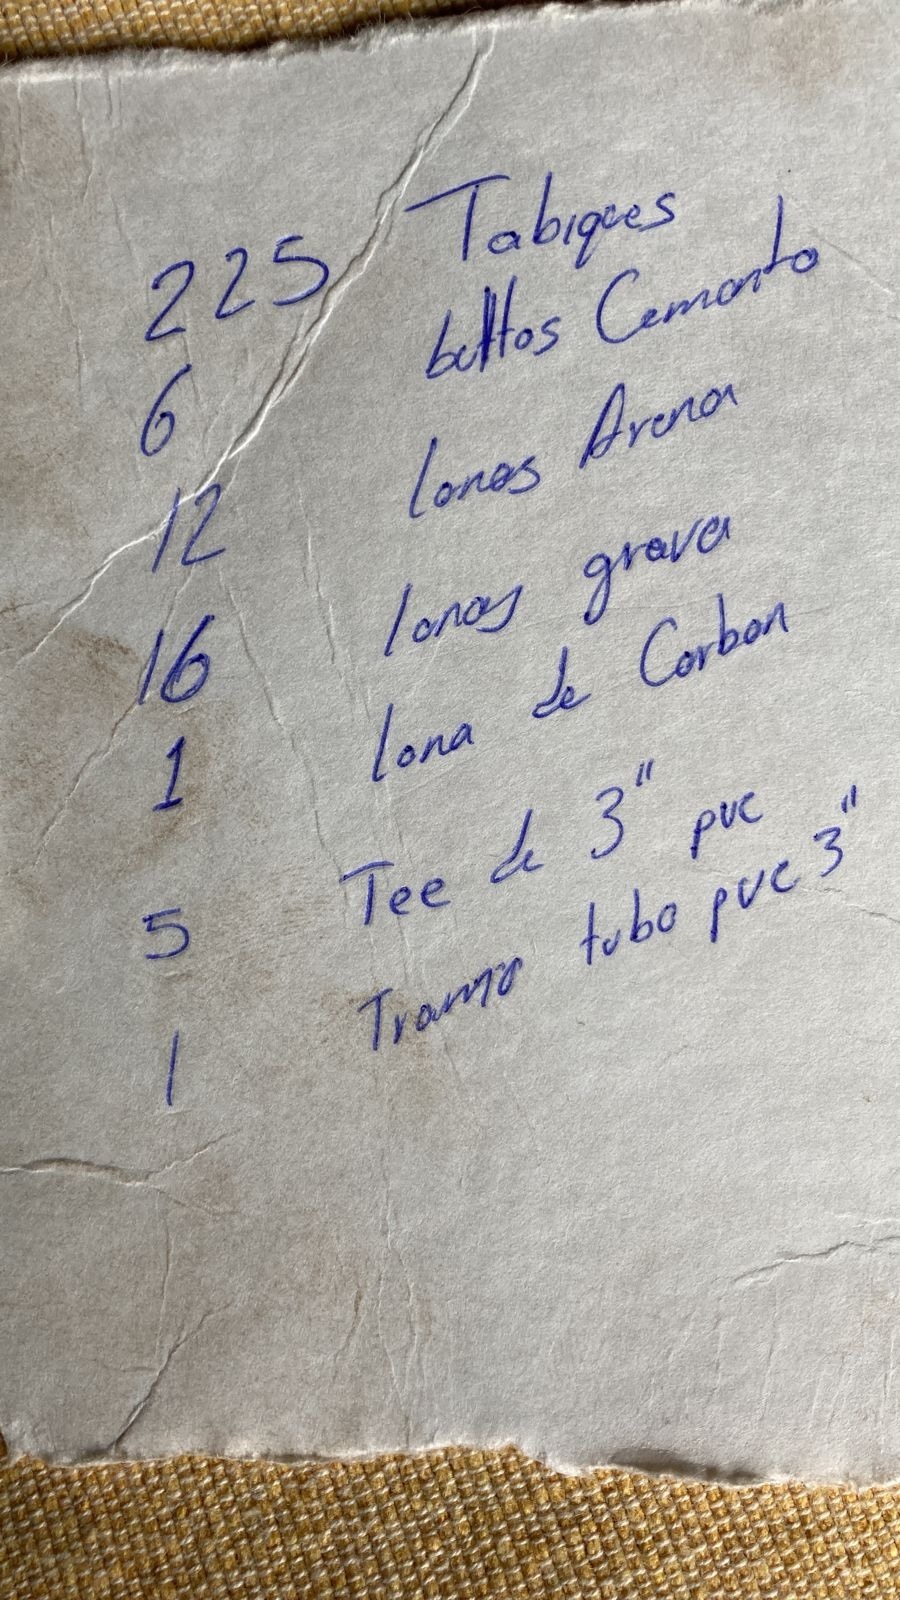 225 Tabiques
6 bultos Cemento
12 lonas Arena
16 lonas grava
1 lona de Carbon
5 Tee de 3" pvc
1 Tramo tubo pvc 3"